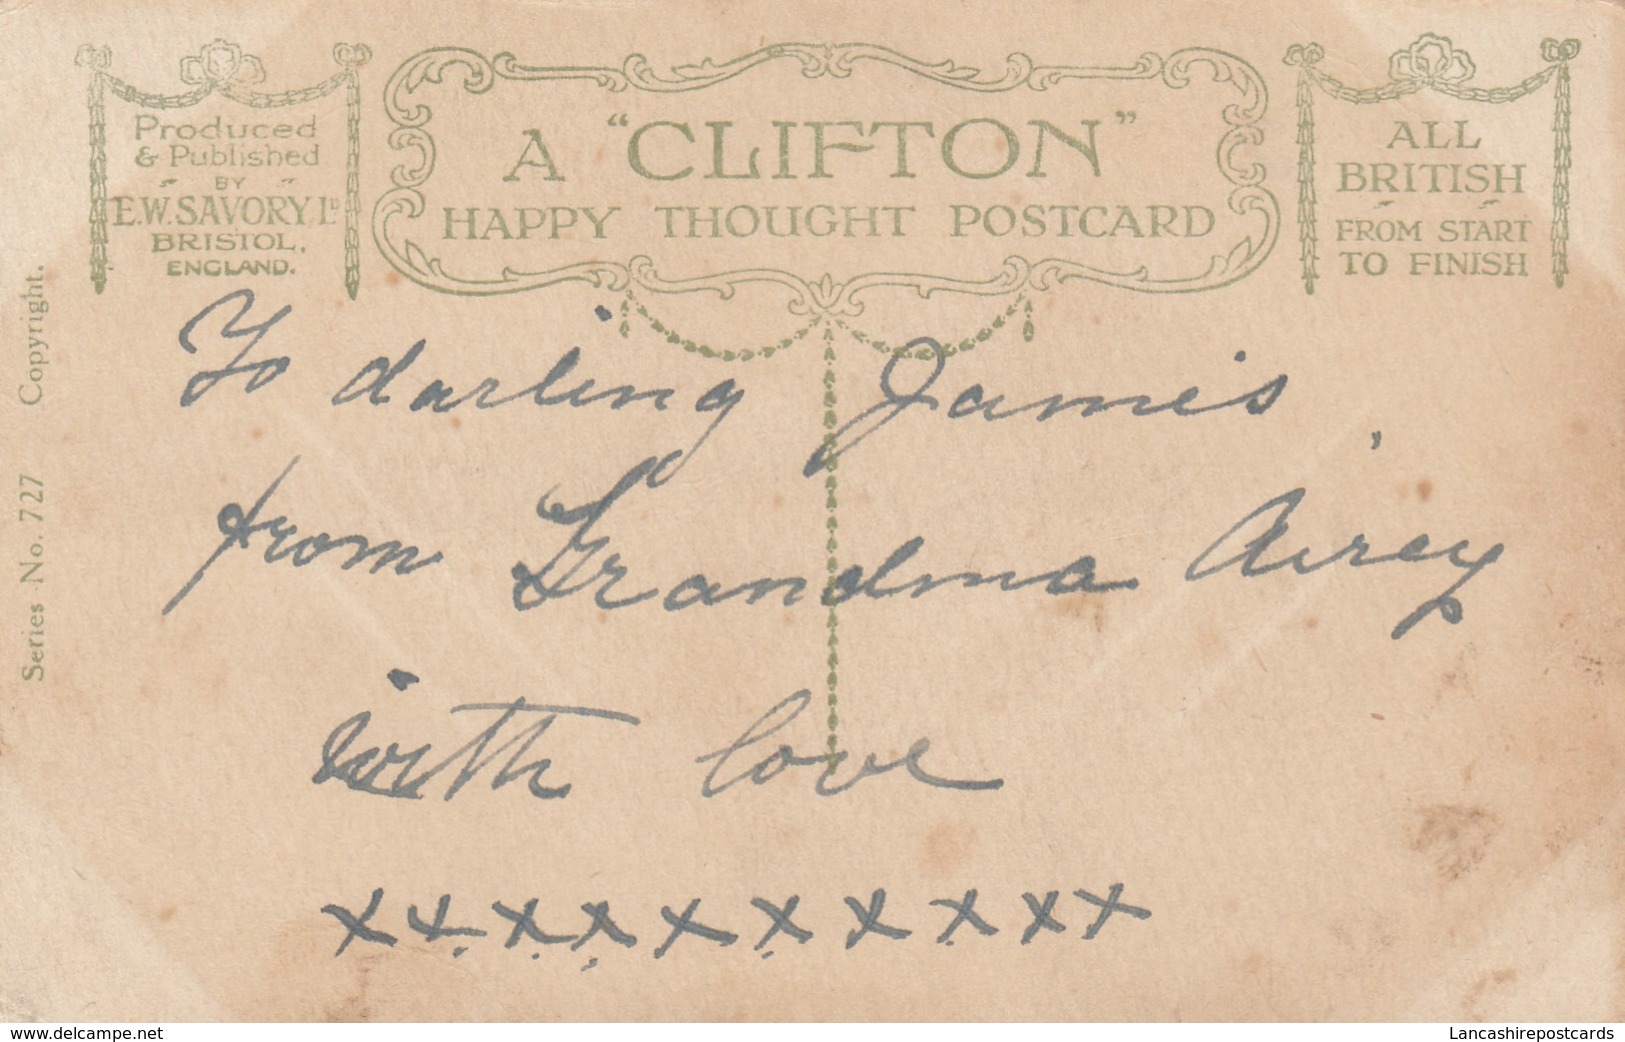 Produced
& Published
BY
E.W. SAVORY, LD
BRISTOL,
ENGLAND.
A "CLIFTON"
HAPPY THOUGHT POSTCARD
ALL
BRITISH
FROM START
TO FINISH
Series No. 727 Copyright.
To darling James
from Grandma Airey
with love
x x x x x x x x x x
www.delcampe.net
Lancashirepostcards